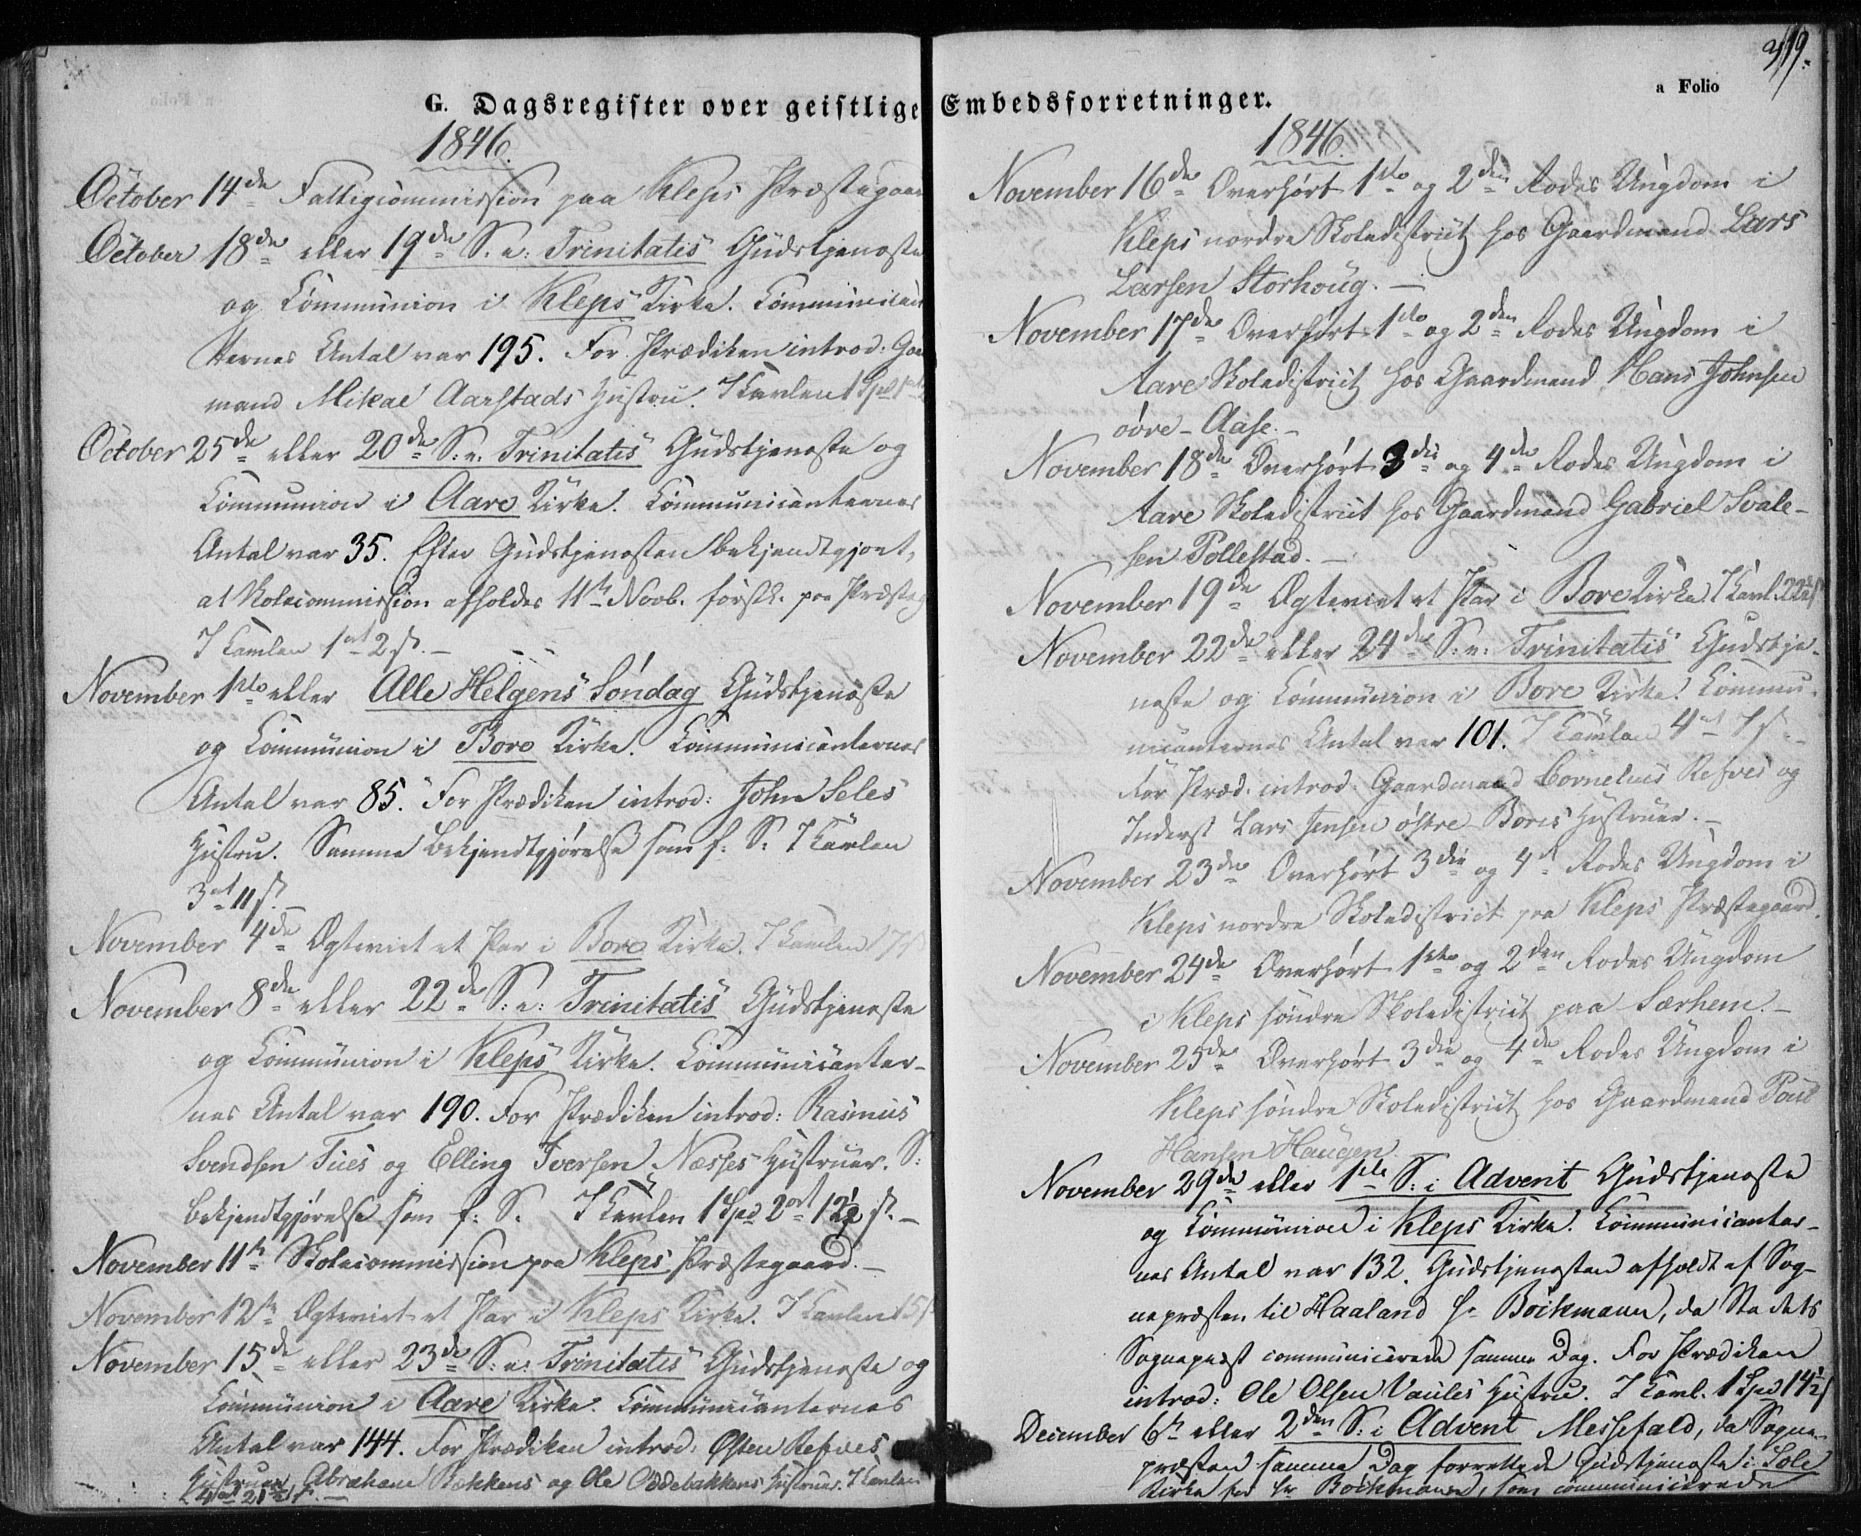 G. Dagsregister over geistlige Embedsforretninger.
a Folio
319.
1846.
October 14de Fattigcommission paa Kleps Præstegaar
October 18de eller 19de S. e. Trinitatis Gudstjeneste
og Communion i Kleps Kirke. Communican
ternes Antal var 195. For Prædiken introd: Gaa
mand Mikae Aarstads Hustru. I Tavlen 1 Spd 1
October 25de eller 20de S. e. Trinitatis Gudstjeneste og
Communion i Aare Kirke. Communicanternes
Antal var 35. Efter Gudstjenesten bekjendtgjort,
at Skolecommission afholdes 11te Novb. førstk. paa Præsteg
I Tavlen 1 ort 2 s. –
November 1ste eller Alle Helgens Søndag Gudstjeneste
og Communion i Bore Kirke. Communicanternes
Antal var 85. For Prædiken introd: John Seles
Hustru. Samme Bekjendtgjørelse som f: S. I Tavlen
3 ort 11 s. –
November 4de Ægteviet et Par i Bore Kirke. I Tavlen 17 s
November 8de eller 22de S: e: Trinitatis Gudstjeneste
og Communion i Kleps Kirke. Communicanter-
nes Antal var 190. For Prædiken introd: Rasmus
Svendsen Tues og Elling Iversen Næsses Hustruer. S:
bekjendtgjørelse som f: S. I Tavlen 1 Spd 2 ort 12½ s. –
November 11te Skolecommission paa Kleps Præstegaard. –
November 12te Ægteviet et Par i Kleps Kirke. I Tavlen 15 s
November 15de eller 23de S: e: Trinitatis Gudstjeneste og
Communion i Aare Kirke. Communicanternes
Antal var 144. For Prædiken introd: Østen Refves
Hustruer, Abraham Bækkens og Ole Oddebakkens Hustruer. I Tavlen
1846.
November 16de Overhørt 1ste og 2den Rodes Ungdom i
Kleps nordre Skoledistrict hos Gaardmand Lars
Larsen Storhoug. –
November 17de Overhørt 1ste og 2den Rodes Ungdom i
Aare Skoledistrict hos Gaardmand Hans Johnsen
øvre-Aase. –
November 18de Overhørt 3die og 4de Rodes Ungdom i
Aare Skoledistrict hos Gaardmand Gabriel Svale-
sen Pollestad. –
November 19de Ægteviet et Par i Bore Kirke. I Tavl. 22½ s
November 22de eller 24de S. e. Trinitatis Gudstje-
neste og Communion i Bore Kirke. Commu-
nicanternes Antal var 101. I Tavlen 4 ort 7 s. –
For Præd. introd. Gaardmand Cornelius Refves og
Inderst Lars Jensen østre-Bores Hustruer. –
November 23de Overhørt 3die og 4de Rodes Ungdom i
Kleps nordre Skoledistrict paa Kleps Præstegaard.
November 24de Overhørt 1ste og 2den Rodes Ungdom
i Kleps søndre Skoledistrict paa Særhem. –
November 25de Overhørt 3die og 4de Rodes Ungdom i
Kleps søndre Skoledistrict hos Gaardmand Paul
Hansen Haugen.
November 29de eller 1ste S: i Advent Gudstjeneste
og Communion i Kleps Kirke. Communicanter-
nes Antal var 132. Gudstjenesten afholdt af Sog-
nepræsten til Haaland Hr Böckmann, da Stedets
Sognepræst communicerede samme Dag. For Prædiken
introd: Ole Olsen Vaules Hustru. I Tavl. 1 Spd 14½ s
December 6te eller 2den S: i Advent Messefald, da Sogne-
præsten samme Dag forrettede Gudstjeneste i Sole
Kirke for Hr Böckmann, som communicerede